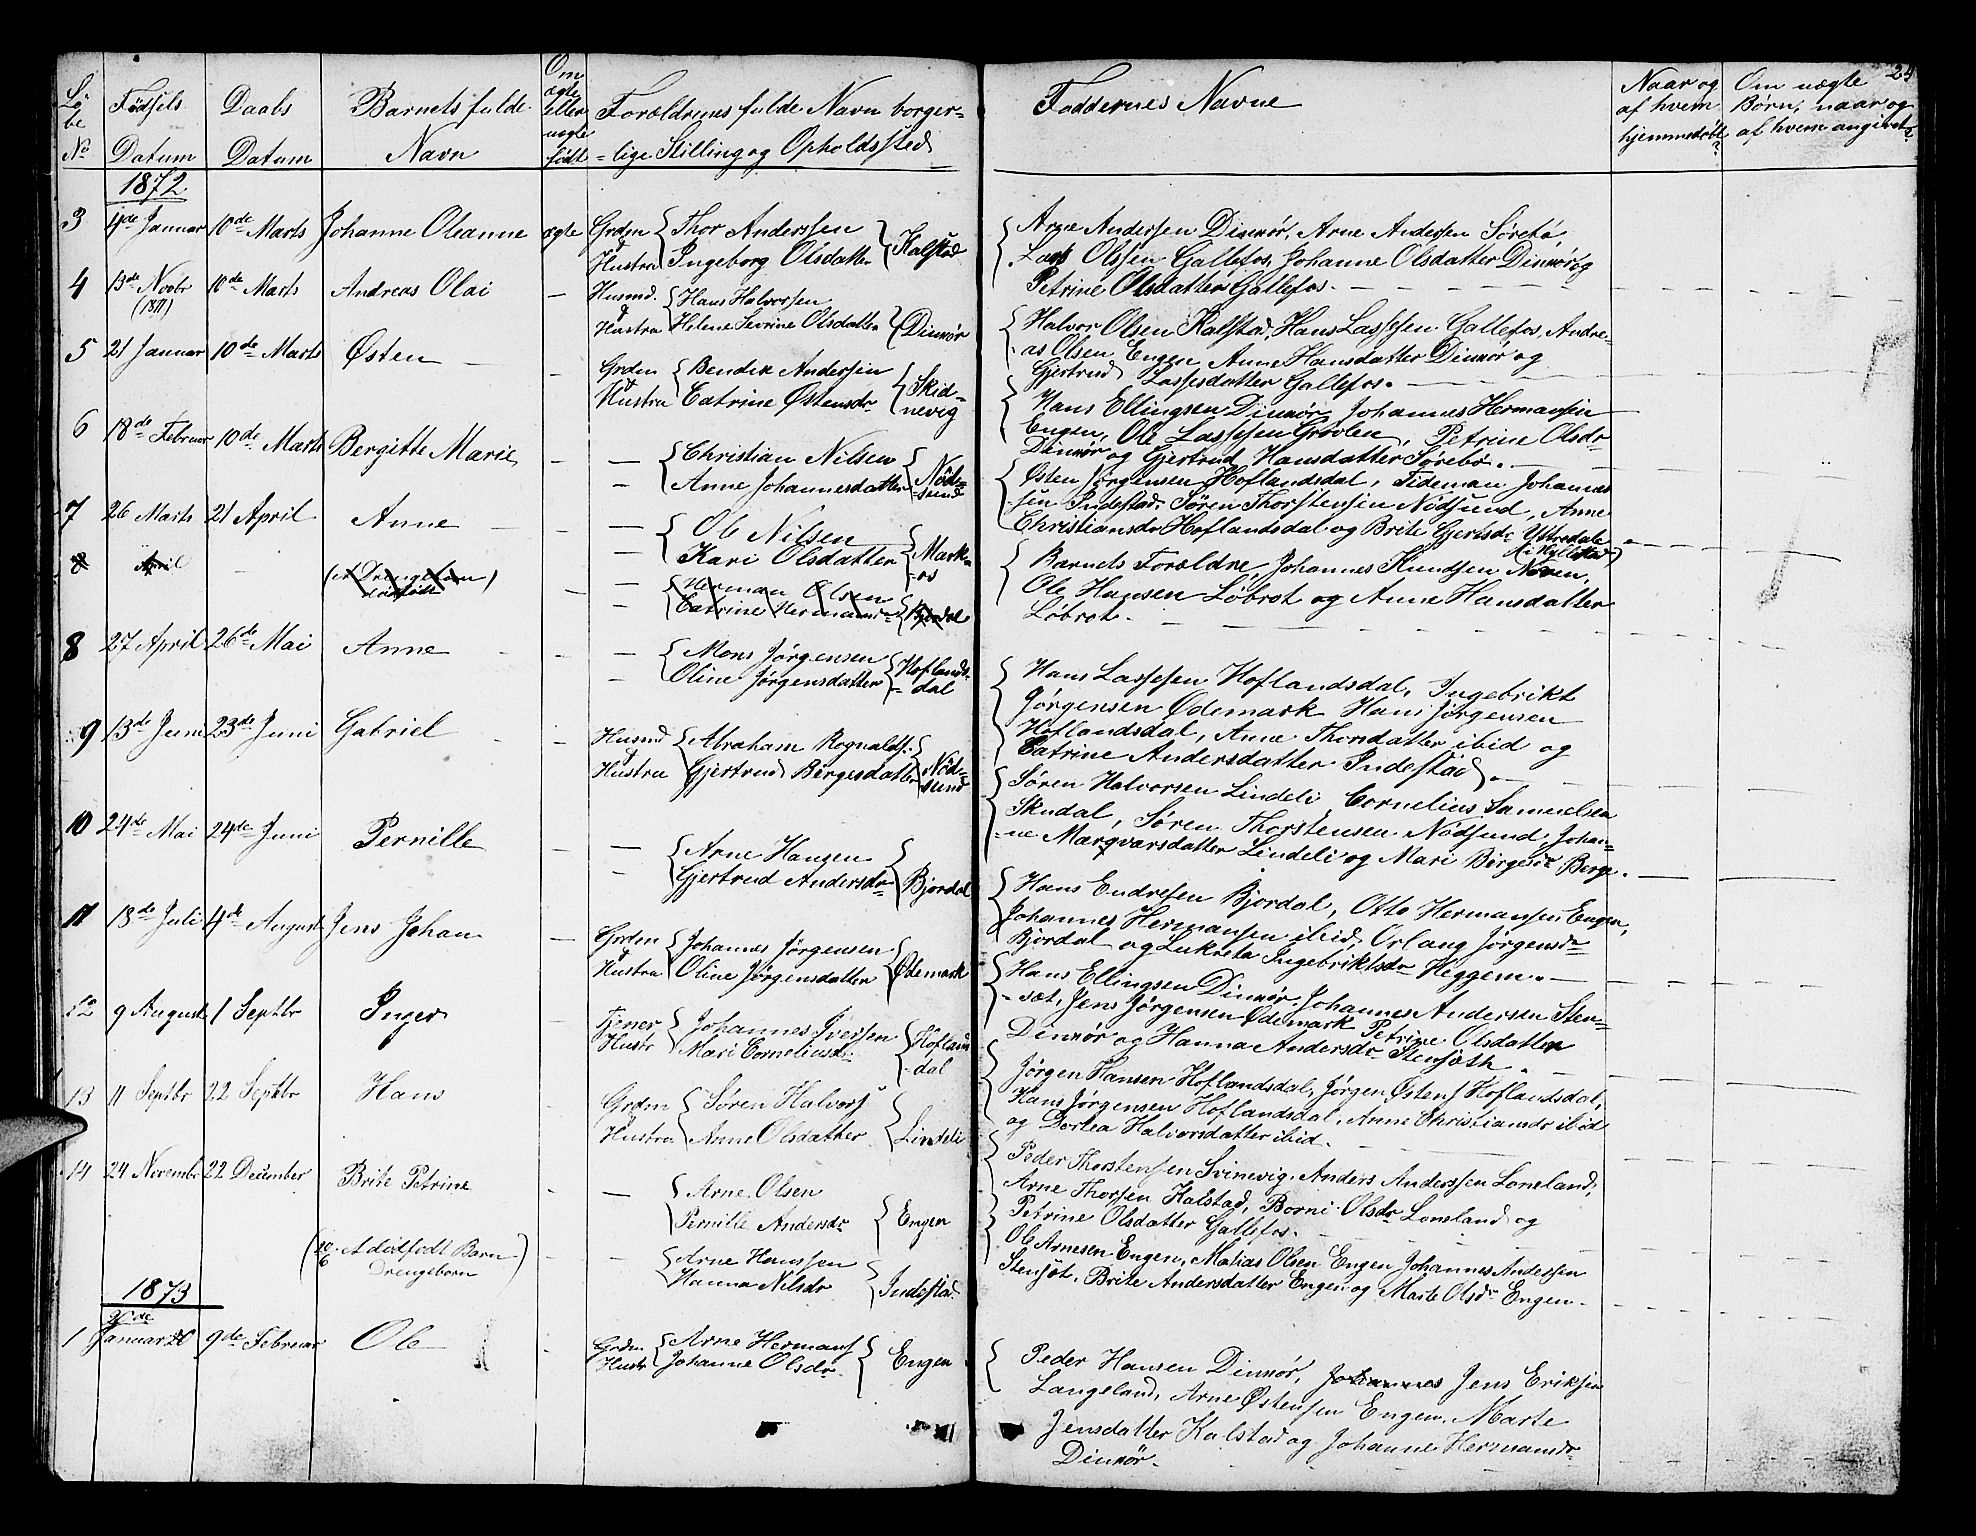 24
Lö
be
No
Fødsels
Datum
Daabs
Datum
Barnets fulde
Navn
Om
ægte
eller
uægte
født
Forældrenes fulde Navn borger-
lige Stilling og Opholdssted
Faddernes Navne
Naar og
af hvem
hjemmedøbt?
Om uægte
Børn, naar og
af hvem angivet?
1872
3 4de Januar 10de Marts Johanne Oleanne ægte Grdm Thor Anderssen
Hustru Ingeborg Olsdatter Kalstad
Arne Andersen Dinnør, Arne Andersen
Lars Olssen Gallefos, Johanne Olsdatter Dinnør og
Petrine Olsdatter Gallefos.
4 13de Novbr (1871) 10de Marts Andreas Olai — Husmd. Hans Halvorssen
Hustru Helene Sevrine Olsdatter Dinnør
Halvor Olsen Kalstad, Hans Lassesen Gallefos, Andre-
as Olsen Engen, Anne Hansdatter Dinnør og
Gjertrud Lassesdatter Gallefos.
5 21 Januar 10de Marts Østen — Grdm Bendik Anderssen
Hustru Catrine Østensdr Skid-
nevig
Hans Ellingsen Dinnør, Johannes Hermansen
Engen, Ole Lassesen Grøvlen, Petrine Olsdr
Dinnør og Gjertrud Hansdatter Sørebø.
6 18de Februar 10de Marts Bergitte Marie — — Christian Nilsen
— Anne Johannesdatter Nöd-
sund
Østen Jörgensen Hoflandsdal, Tideman Johannes
sen Indestad, Sören Thorstensen Nödsund, Anne
Christiansdr Hoflandsdal og Brite Gjertsdr Yttredale
(i Hyllestad)
7 26 Marts 21 April Anne — — Ole Nilsen
— Kari Olsdatter Mark-
os
Barnets Forældre, Johannes Knudsen Noven,
Ole Hansen Löbrot og Anne Hansdatter
Löbrot.
8 April — (et Drengebarn)
dödfödt — Herman Olsen
— Catrine Hermansdr Bjordal
8 27 April 26de Mai Anne — — Mons Jørgensen
— Oline Jørgensdatter Hoflands-
dal
Hans Lassesen Hoflandsdal, Ingebrikt
Jørgensen Ødemark Hans Jørgensen
Hoflandsdal, Anne Thorsdatter ibid og
Catrine Andersdatter Indestad.
9 13de Juni 23de Juni Gabriel — Husmd Abraham Rognalds.
Hustru Gjertrud Børgesdatter Nöd-
sund
Søren Halvorsen Lindeli, Cornelius Samuelsen
Skudal, Søren Thorstensen Nödsund, Johan-
ne Marqvarsdatter Lindeli og Mari Birgesdr Berge.
10 24de Mai 24de Juni Pernille — — Arne Hansen
— Gjertrud Andersdr Bjordal
Hans Endresen Bjordal, Otto Hermansen Engen,
Johannes Hermansen ibid, Orlaug Jørgensdr
Bjordal og Lukreta Ingebriktsdr Heggem.
11 18de Juli 4de August Jens Johan — Grdm Johannes Jörgensen
Hustru Oline Jørgensdatter Ødemark
Hans Ellingsen Dinnør, Johannes Andersen Sten-
sæt, Jens Jørgensen Ødemark Petrine Olsdatter
Dinnør og Hanna Andersdr Stensøth.
12 9 August 1 Septbr Inger Tjener Johannes Iverssen
Hustr Mari Corneliusdr Hoflands
dal
Jørgen Hansen Hoflandsdal, Jørgen Østens Hoflandsdal,
Hans Jørgensen Hoflandsdal, Anne Christiansdr ibid
og Dortea Halvorsdatter ibid.
13 11 Septbr 22 Septbr Hans Grdm Søren Halvors
Hustru Anne Olsdatter Lindeli
Peder Thorstensen Svinevig, Anders Anderssen Loneland,
Arne Thorsen Kalstad, Borni Olsdr Loneland og
Petrine Olsdatter Gallefos.
14 24 Novembr 22 December Brite Petrine — — Arne Olsen
Pernille Andersdr Engen
Ole Arnesen Engen, Matias Olsen Engen Johannes Andersen
Stensöt, Brite Andersdatter Engen og Marte Olsdr Engen.
(20/6 et dødfödt Barn
Drengebarn) — — Arne Hanssen
Hanna Nilsdr Indestad
1873
1 Januar 20 9de Februar Ole — Grdm Arne Hermans
Hustr Johanne Olsdr Engen
Peder Hansen Dinnør, Johannes Jens Eriksen
Langeland, Arne Østensen Engen, Marte
Jensdatter Kalstad og Johanne Hermansdr
Dinnør.